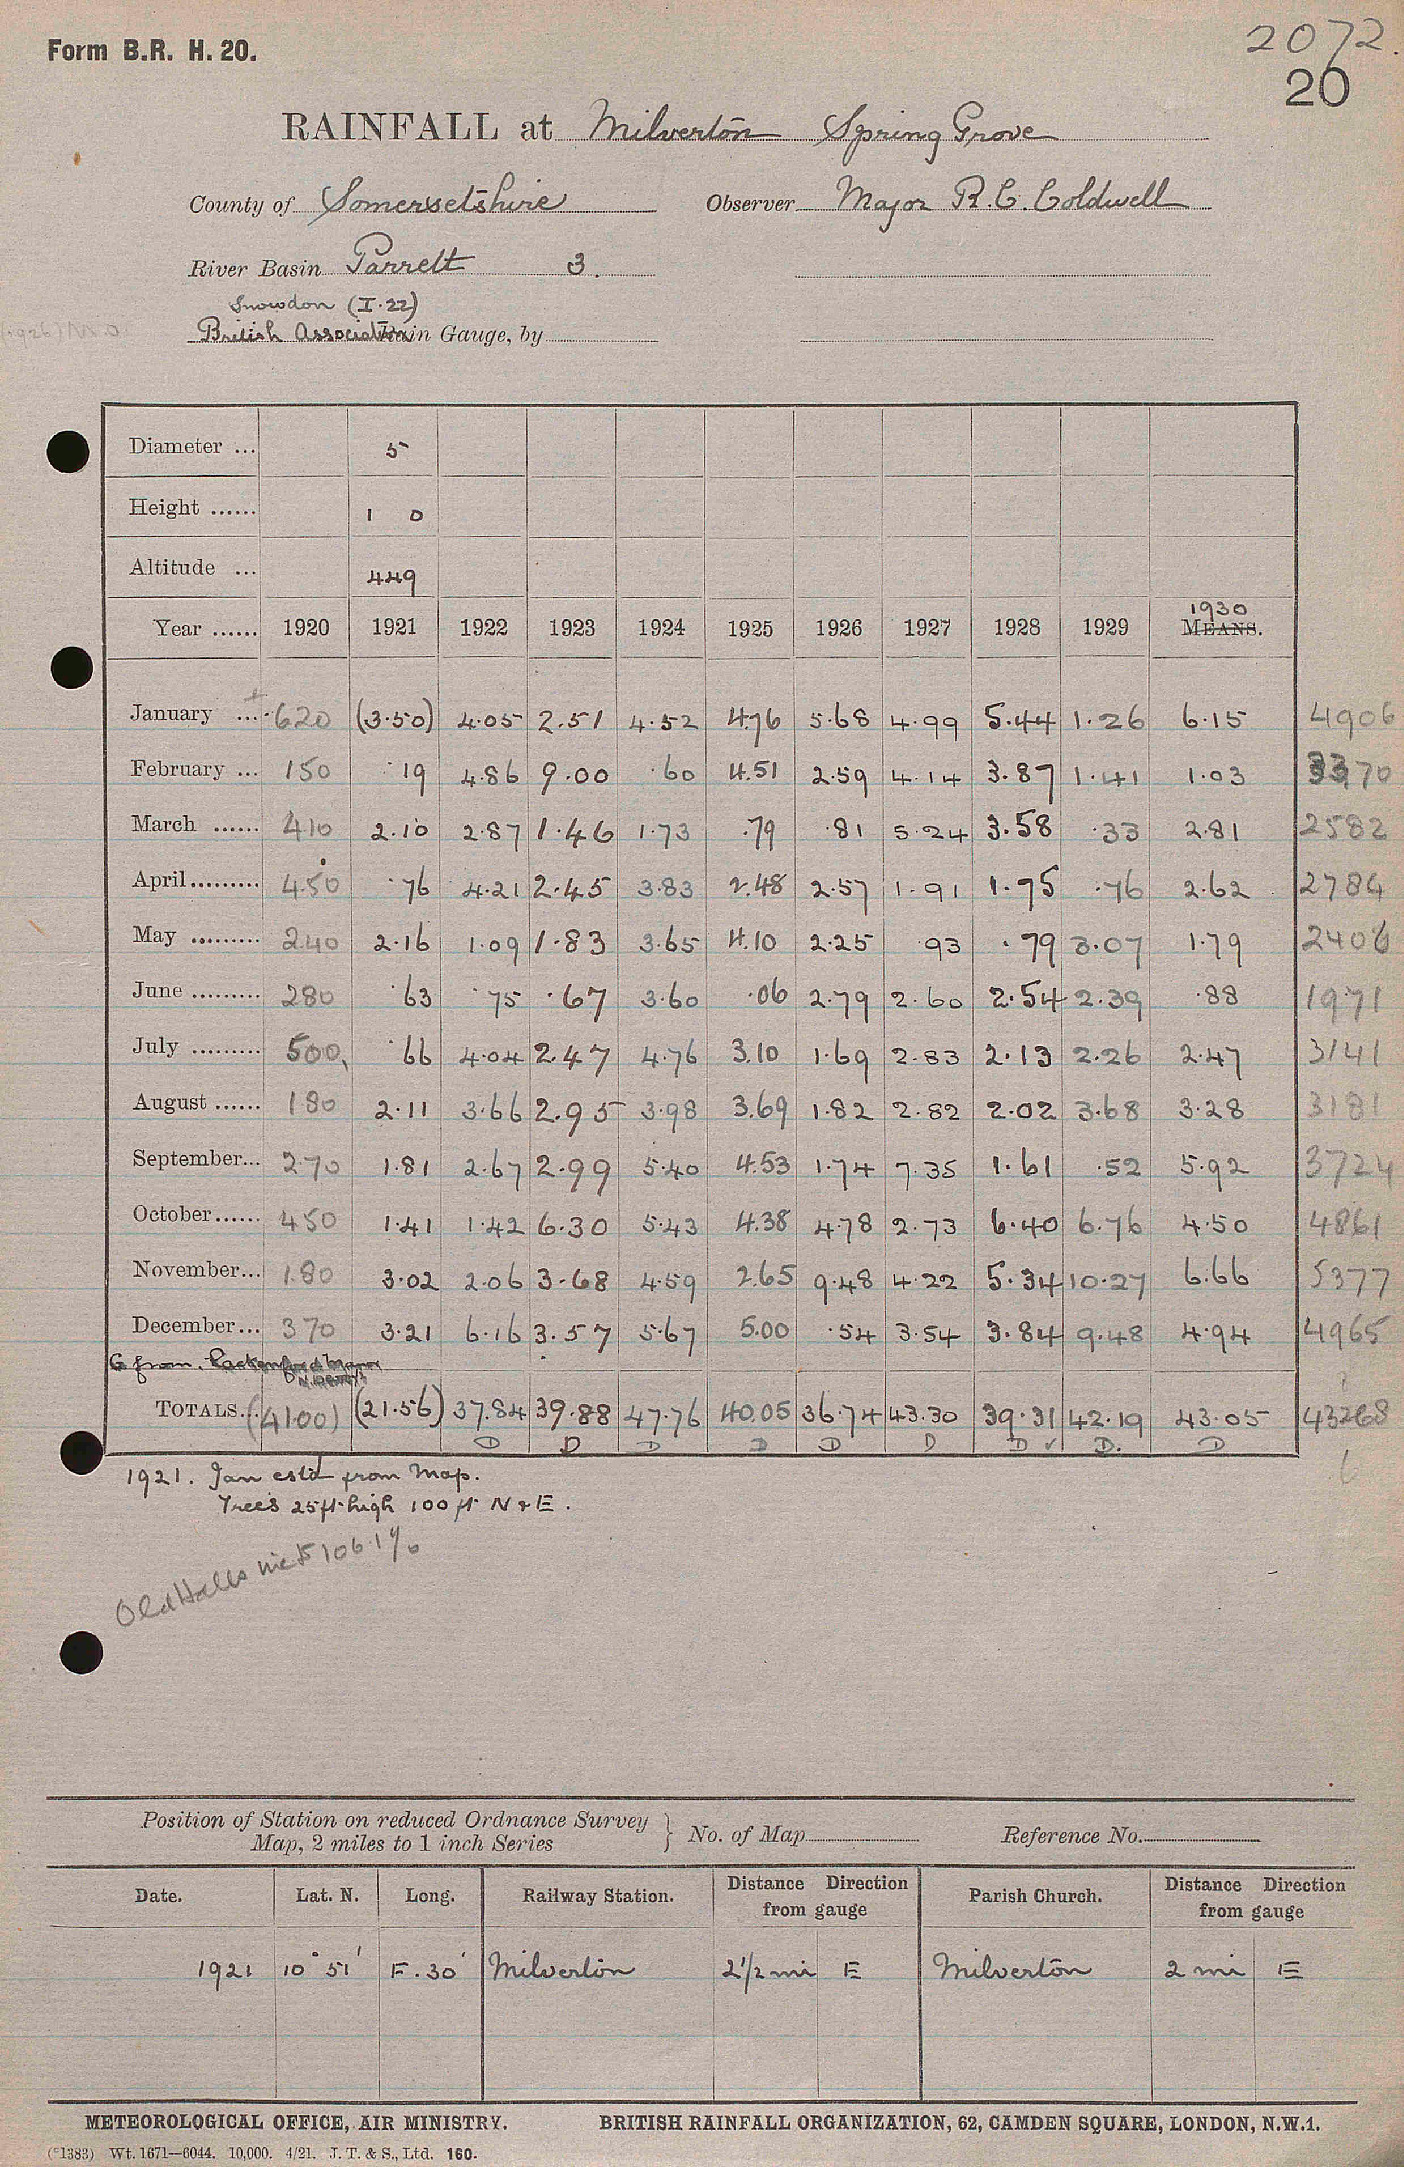 Form B.R. H. 20.
2072.
20
RAINFALL at Milverton Spring Grove
County of Somersetshire Observer Major R. C. Coldwell
River Basin Parrett 3.
Snowdon (I.22)
British Association Rain Gauge, by
Diameter ... 5
Height ...... 1 0
Altitude ... 449
1930
Year ...... 1920 1921 1922 1923 1924 1925 1926 1927 1928 1929 MEANS.
January ... 620 (3.50) 4.05 2.51 4.52 4.76 5.68 4.99 5.44 1.26 6.15 4906
February ... 150 .19 4.86 9.00 .60 4.51 2.59 4.14 3.87 1.41 1.03 3370
March ...... 410 2.10 2.87 1.46 1.73 .79 .81 5.24 3.58 .33 2.81 2582
April......... 4.50 .76 4.21 2.45 3.83 2.48 2.57 1.91 1.75 .76 2.62 2784
May ......... 240 2.16 1.09 1.83 3.65 4.10 2.25 .93 .79 3.07 1.79 2406
June ......... 280 .63 .75 .67 3.60 .06 2.79 2.60 2.54 2.39 .88 1971
July ......... 500 .66 4.04 2.47 4.76 3.10 1.69 2.83 2.13 2.26 2.47 3141
August ...... 180 2.11 3.66 2.95 3.98 3.69 1.82 2.82 2.02 3.68 3.28 3181
September... 270 1.81 2.67 2.99 5.40 4.53 1.74 7.35 1.61 .52 5.92 3724
October...... 450 1.41 1.42 6.30 5.43 4.38 4.78 2.73 6.40 6.76 4.50 4861
November... 180 3.02 2.06 3.68 4.59 2.65 9.48 4.22 5.34 10.27 6.66 5377
December... 370 3.21 6.16 3.57 5.67 5.00 .54 3.54 3.84 9.48 4.94 4965
from Rackenford Manor
TOTALS... (4100) (21.56) 37.84 39.88 47.76 40.05 36.74 43.30 39.31 42.19 43.05 43268
D D D D D D D ✓ D. D
1921. Jan estd from Map.
Trees 25ft high 100 ft N & E.
Old Halls 106.1%
Position of Station on reduced Ordnance Survey
Map, 2 miles to 1 inch Series } No. of Map Reference No.
Date. Lat. N. Long. Railway Station. Distance Direction from gauge Parish Church. Distance Direction from gauge
1921 10° 51' F. 30' Milverton 2½ mi E Milverton 2 mi E
METEOROLOGICAL OFFICE, AIR MINISTRY. BRITISH RAINFALL ORGANIZATION, 62, CAMDEN SQUARE, LONDON, N.W.1.
(*1383) Wt. 1671—6044. 10,000. 4/21. J. T. & S., Ltd. 160.